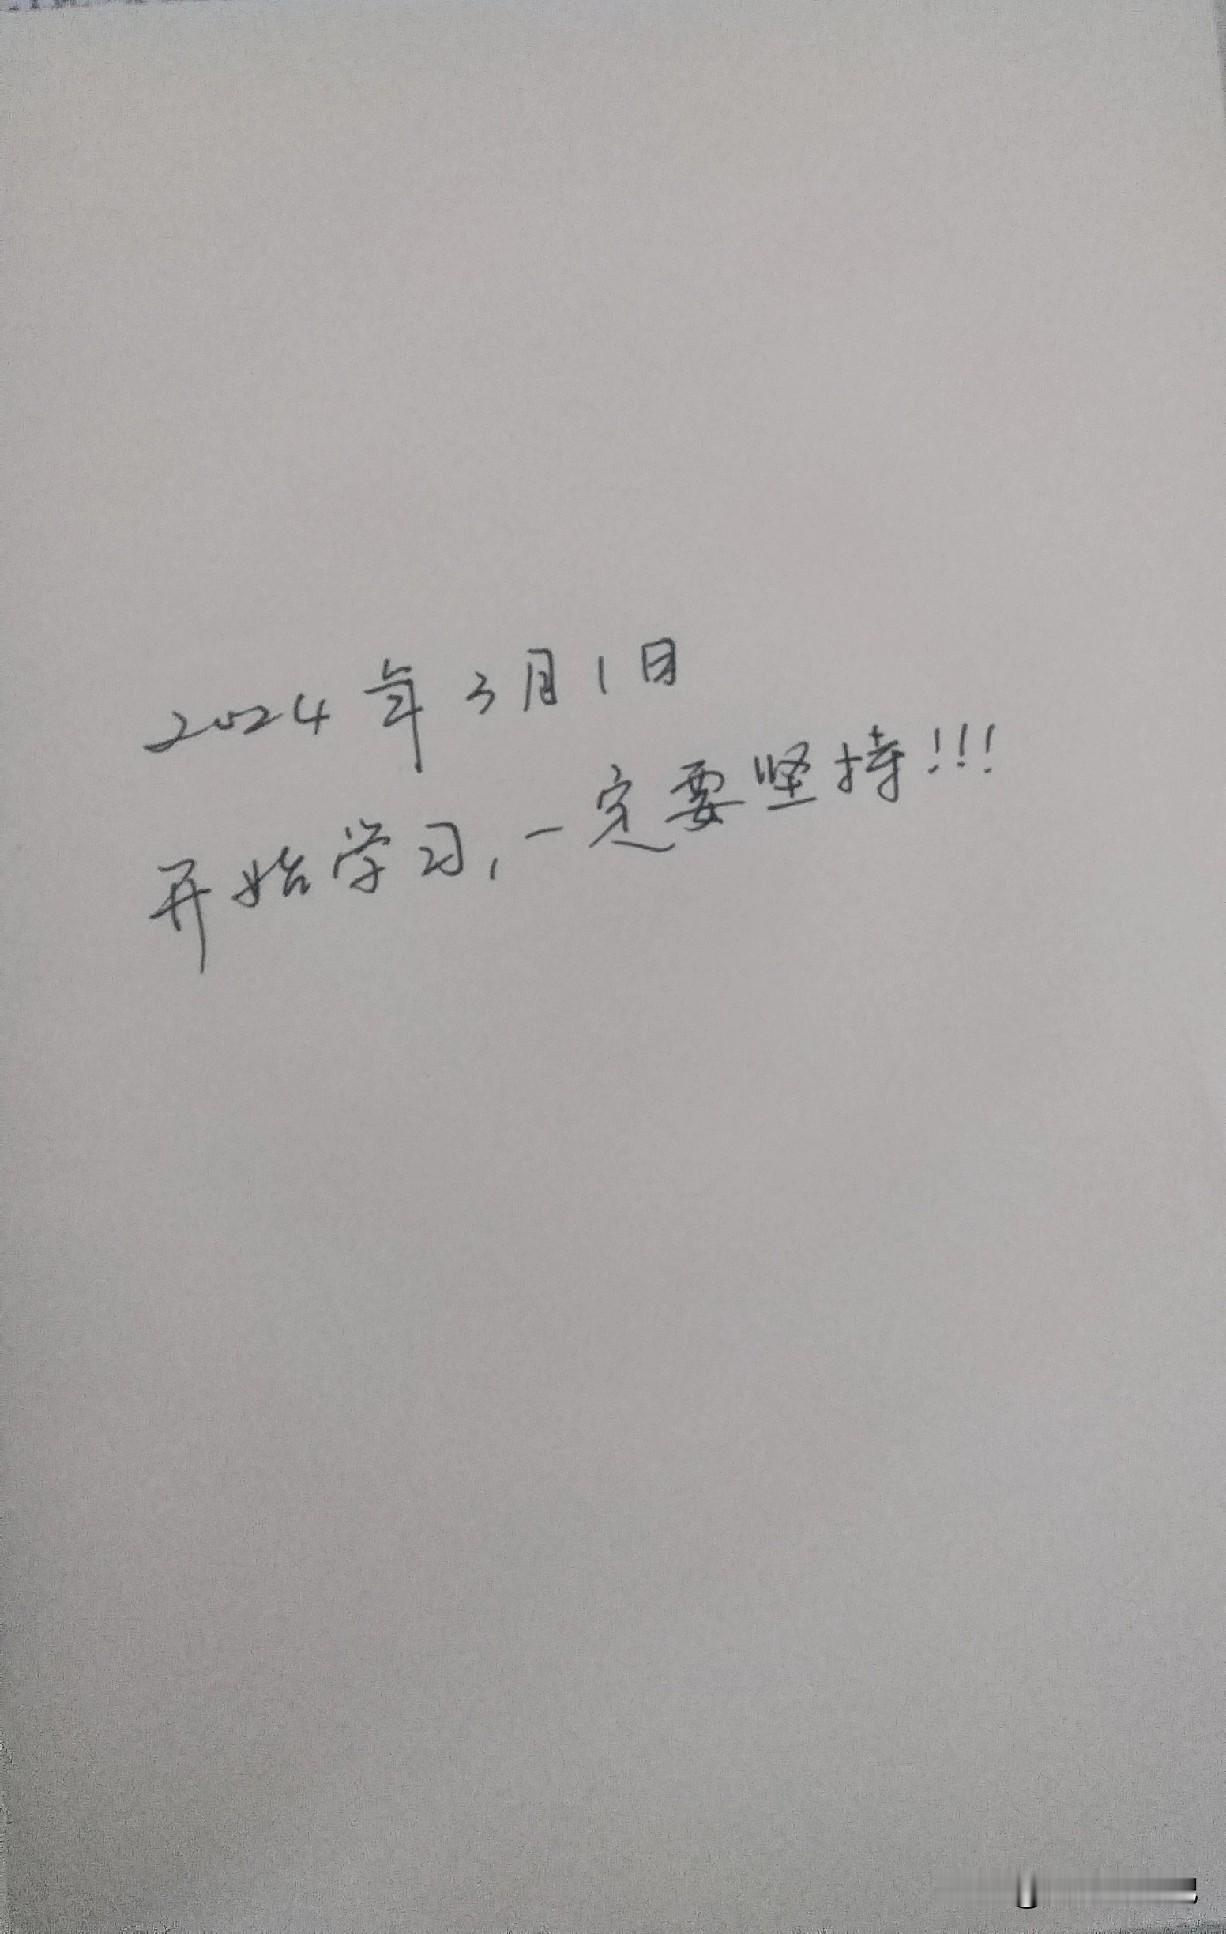 2024年3月1日
开始学习,一定要坚持!!!